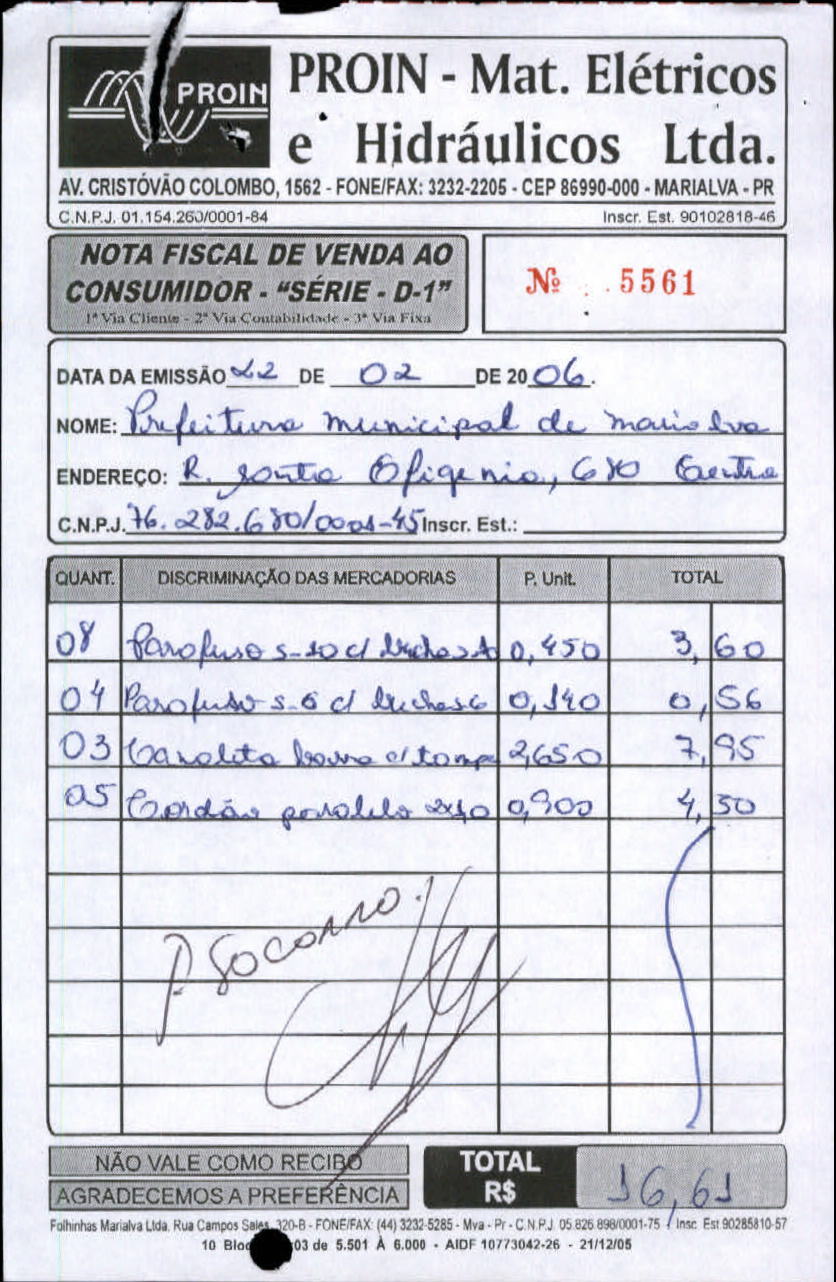 PROIN
PROIN - Mat. Elétricos
e Hidráulicos Ltda.
AV. CRISTÓVÃO COLOMBO, 1562 - FONE/FAX: 3232-2205 - CEP 86990-000 - MARIALVA - PR
C.N.P.J. 01.154.260/0001-84 Inscr. Est. 90102818-46
NOTA FISCAL DE VENDA AO
CONSUMIDOR - "SÉRIE - D-1"
1ª Via Cliente - 2ª Via Contabilidade - 3ª Via Fixa
Nº 5561
DATA DA EMISSÃO 22 DE 02 DE 2006.
NOME: Prefeitura municipal de marialva
ENDEREÇO: R. Santa Efigenia, 680 Centro
C.N.P.J. 76.282.680/0001-45 Inscr. Est.:
QUANT. DISCRIMINAÇÃO DAS MERCADORIAS P. Unit. TOTAL
08 Parafuso s-10 c/ 0,450 3,60
04 Parafuso s-6 c/ 0,140 0,56
03 Canaleta barra c/ tampa 2,650 7,95
05 Cordão paralelo 0,900 4,50
P. SOCORRO.
NÃO VALE COMO RECIBO
AGRADECEMOS A PREFERÊNCIA
TOTAL
R$ 16,61
Folhinhas Marialva Ltda, Rua Campos Sales, 320-B - FONE/FAX: (44) 3232-5285 - Mva - Pr - C.N.P.J. 05.826.898/0001-75 Insc. Est 90285810-57
10 03 de 5.501 À 6.000 - AIDF 10773042-26 - 21/12/05